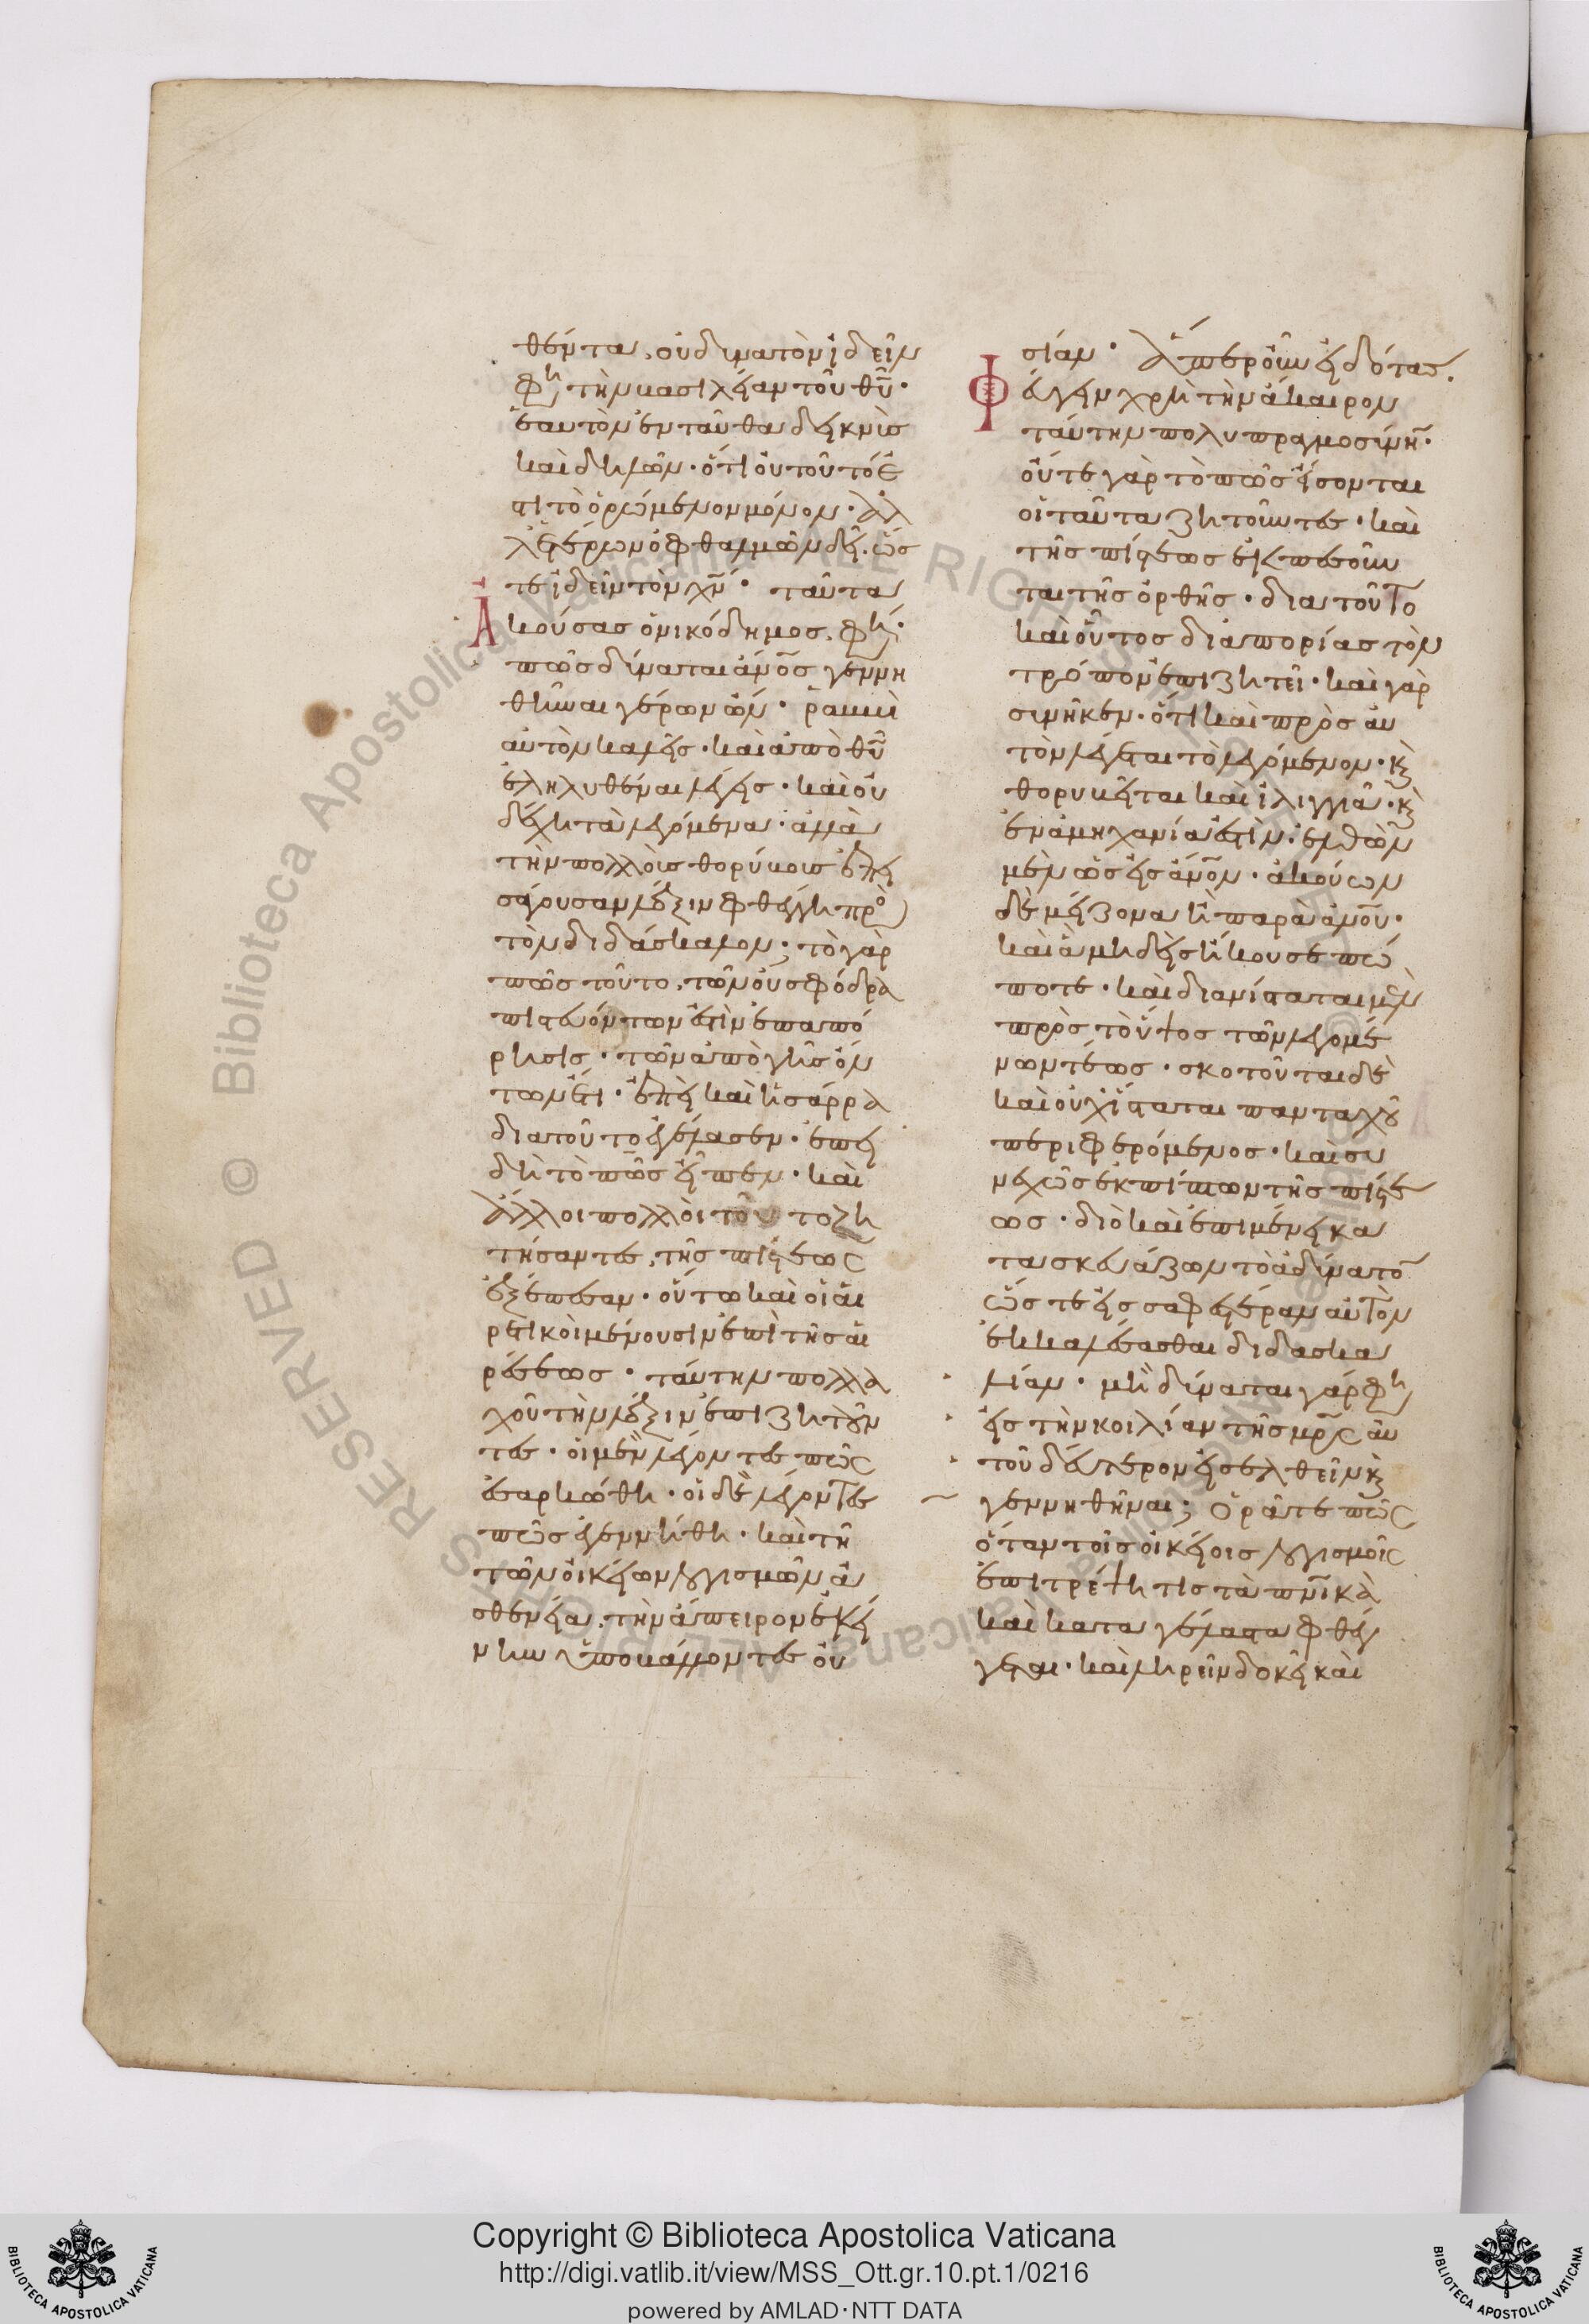 θέντα, οὐ δυνατὸν ἰδεῖν
φη τὴν βασιλείαν τοῦ θῦ·
ἑαυτὸν ἐνταῦθα δεικνὺς
καὶ δηλῶν· ὅτι οὐ τοῦτό ἐ
στι τὸ ὁρώμενον μόνον· ἀλ
λ' ἑτέρων ὀφθαλμῶν δεῖ. ὥς
τε ἰδεῖν τὸν χν· ταῦτα
Ἀκούσας ὁ νικόδημος. φη·
πῶς δύναται ἀνος γεννη
θῆναι γέρων ὤν· ῥαββὶ
αὐτὸν καλεῖς· καὶ ἀπὸ θῦ
ἐληλυθέναι λέγεις· καὶ οὐ
δέχη τὰ λεγόμενα· ἀλλὰ
τὴν πολλοῖς θορύβοις ἐπει
σάγουσαν λέξιν φθέγγη προ
τὸν διδάσκαλον; τὸ γὰρ
πῶς τοῦτο, τῶν οὐ σφόδρα
πιστευόντων ἐστὶν ἐπαπό
ρησις· τῶν ἀπὸ γῆς ὄν
των ἔτι· ἐπεὶ καὶ ἡ σάρρα
διατοῦτο ἐγέλασεν· ἐπει
δὴ τὸ πῶς εἶπεν· καὶ
ἄλλοι πολλοὶ τοῦτο ζη
τήσαντες, τῆς πίστεως
ἐξέπεσαν· οὕτω καὶ οἱ αἱ
ρετικοὶ μένουσιν ἐπὶ τῆς αἱ
ρέσεως· ταύτην πολλα
χοῦ τὴν λέξιν ἐπιζητοῦν
τες· οἱ μὲν λέγοντες πῶς
ἐσαρκώθη· οἱ δὲ λέγοντες
πῶς ἐγεννήθη· καὶ τῆ
τῶν οἰκείων λογισμῶν ἀ
σθενεία, τὴν ἄπειρον ἐκεί
νην ὑποβάλλοντες οὐ
σίαν· Ἅπερ οὖν εἰδότας.
Φεύγειν χρὴ τὴν ἄκαιρον
ταύτην πολυπραγμοσύνην·
οὔτε γὰρ τὸ πῶς εἴσονται
οἱ ταῦτα ζητοῦντες· καὶ
τῆς πίστεως ἐκπεσοῦν
ται τῆς ὀρθῆς· διατοῦτο
καὶ οὗτος διαπορίας τὸν
τρόπον ἐπιζητεῖ· καὶ γὰρ
συνῆκεν· ὅτι καὶ πρὸς αὐ
τὸν λέγεται τὸ λεγόμενον· κ
θορυβεῖται καὶ ἰλιγγιᾶ· κ
ἐν ἀμηχανία ἐστὶν· ἐλθὼν
μὲν ὡς εἰς ἀνον· ἀκούων
δὲ μείζονα ἢ παρὰ ἀνου·
καὶ ἃ μηδεὶς ἤκουσε πώ
ποτε· καὶ διανίσταται μὲν
πρὸς τὸ ὕψος τῶν λεγομέ
νων τέως· σκοτοῦται δὲ
καὶ οὐχ ἵσταται πανταχοῦ
περιφερόμενος· καὶ συ
νεχῶς ἐκπίπτων τῆς πίστε
ως· διὸ καὶ ἐπιμένει κα
τασκευάζων τὸ ἀδύνατον
ὥστε εἰς σαφεστέραν αὐτὸν
ἐκκαλέσασθαι διδασκα
λίαν· μὴ δύναται γάρ φη
εἰς τὴν κοιλίαν τῆς μρς αὐ
τοῦ δεύτερον εἰσελθεῖν κ
γεννηθῆναι; Ὁρᾶτε πῶς
ὅταν τοῖς οἰκείοις λογισμοῖς
ἐπιτρέψη τις τὰ πνικὰ
καὶ καταγέλαστα φθέγ
γεται· καὶ ληρεῖν δοκεῖ καὶ
Copyright © Biblioteca Apostolica Vaticana
http://digi.vatlib.it/view/MSS_Ott.gr.10.pt.1/0216
powered by AMLAD·NTT DATA